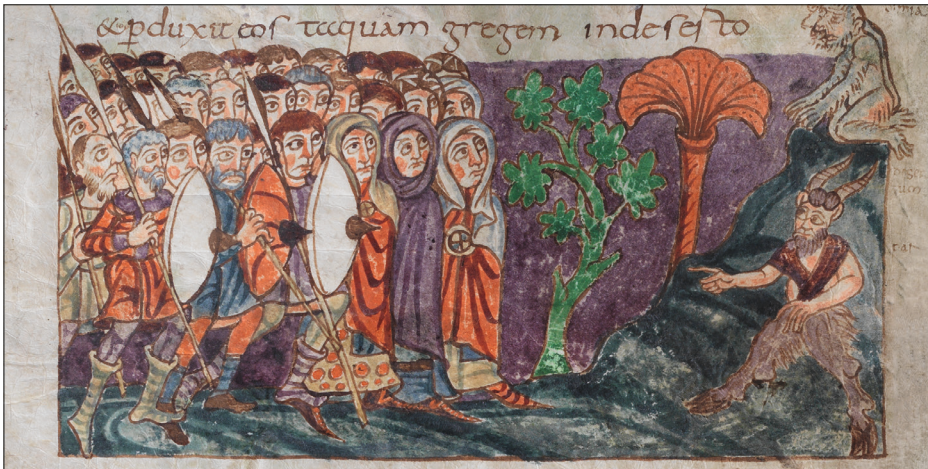 &ꝑduxit eos taquam gregem indeserto